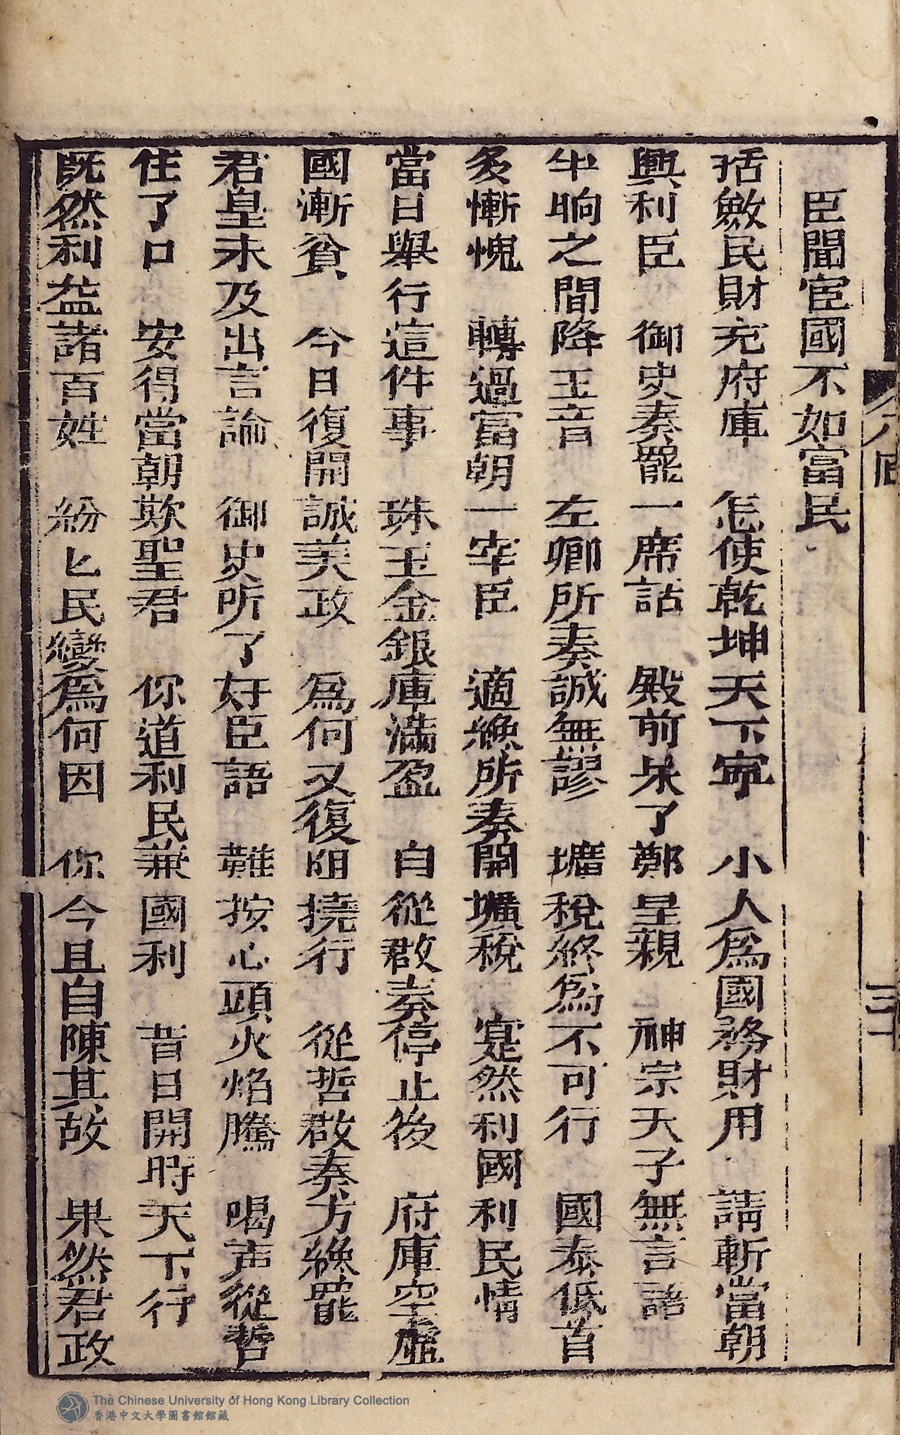 臣聞官國不如富民
括斂民財充府庫　怎使乾坤天下寧　小人爲國務財用　請斬當朝
興利臣　御史奏罷一席話　殿前呆了鄭皇親　神宗天子無言語
半晌之間降玉音　左卿所奏誠無謬　壙稅終爲不可行　國泰低首
多慚愧　轉過當朝一宰臣　適纔所奏開壙稅　寔然利國利民情
當日舉行這件事　珠玉金銀庫滿盈　自從啟奏停止後　府庫空虛
國漸貧　今日復開誠美政　爲何又復阻撓行　從哲啟奏方纔罷
君皇未及出言論　御史听了奸臣語　難按心頭火焰騰　喝声從哲
住了口　安得當朝欺聖君　你道利民兼國利　昔日開時天下行
既然利益諸百姓　紛匕民變爲何因　你今且自陳其故　果然君政
三十
The Chinese University of Hong Kong Library Collection
香港中文大學圖書館館藏